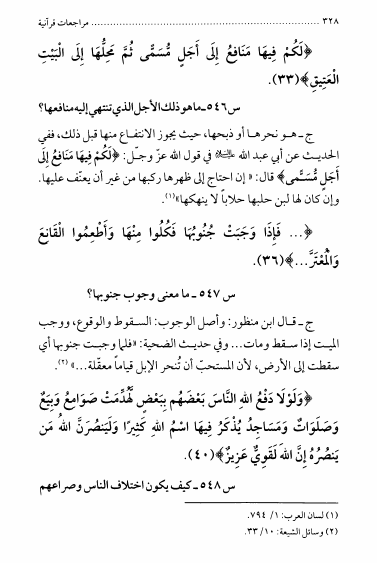 ٣٢٨ ........................................ مراجعات قرآنية
﴿لَكُمْ فِيهَا مَنَافِعُ إِلَى أَجَلٍ مُّسَمًّى ثُمَّ مَحِلُّهَا إِلَى الْبَيْتِ
الْعَتِيقِ﴾(٣٣).
س٥٤٦ ـ ما هو ذلك الأجل الذي تنتهي إليه منافعها؟
ج ـ هـو نحرها أو ذبحها، حيث يجوز الانتفاع منها قبل ذلك، ففي
الحديث عن أبي عبد الله عليه السلام في قول الله عزّ وجلّ: ﴿لَكُمْ فِيهَا مَنَافِعُ إِلَى
أَجَلٍ مُّسَمًّى﴾ قال: «إن احتاج إلى ظهرها ركبها من غير أن يعنّف عليها.
وإن كان لها لبن حلبها حلاباً لا ينهكها»(١)
﴿... فَإِذَا وَجَبَتْ جُنُوبُهَا فَكُلُوا مِنْهَا وَأَطْعِمُوا الْقَانِعَ
وَالْمُعْتَرَّ...﴾(٣٦).
س ٥٤٧ ـ ما معنى وجوب جنوبها؟
ج ـ قـال ابن منظور: وأصل الوجوب: السـقوط والوقوع، ووجب
الميت إذا سـقط ومات... وفي حديث الضحية: «فلما وجبت جنوبها أي
سقطت إلى الأرض، لأن المستحبّ أن تُنحر الإبل قياماً معقّلة...» (٢).
﴿وَلَوْلَا دَفْعُ اللهِ النَّاسَ بَعْضَهُم بِبَعْضٍ لَّهُدِّمَتْ صَوَامِعُ وَبِيَعٌ
وَصَلَوَاتٌ وَمَسَاجِدُ يُذْكَرُ فِيهَا اسْمُ اللهِ كَثِيرًا وَلَيَنصُرَنَّ اللهُ مَن
يَنصُرُهُ إِنَّ اللهَ لَقَوِيٌّ عَزِيزٌ﴾(٤٠).
س ٥٤٨ ـ كيف يكون اختلاف الناس وصراعهم
(١) لسان العرب: ١/ ٧٩٤.
(٢) وسائل الشيعة: ١٠/ ٣٣.